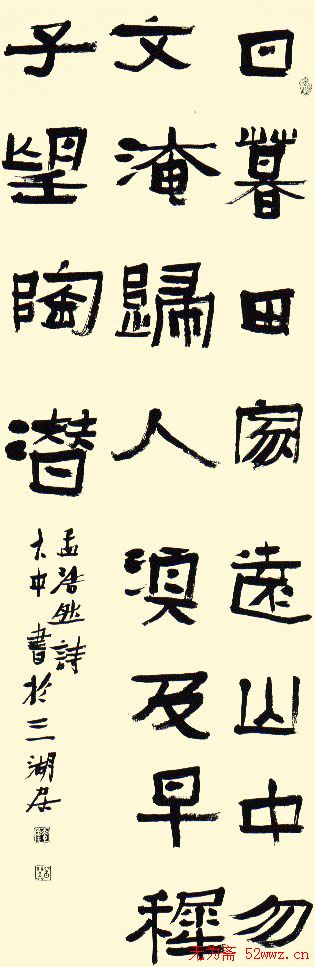 日暮田家遠山中勿
文淹歸人湏及早稺
子望陶潛
孟浩然詩
大中書於三湖居
无为斋 52wwz.cn